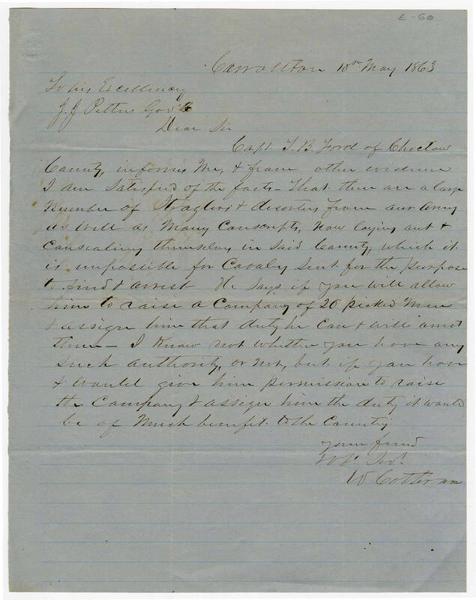 E-50
Carrollton 18th May 1863
To his Excellency
J. J. Pettus Gov &c
Dear Sir
Capt J. B. Ford of Choctaw
County, informs me, & from other evidence
I am Satisfied of the facts - that there are a large
Number of Straglers & deserters from our Army
as well as Many Conscripts, Now laying out &
Concealing themselves in Said County, which it
is impossible for Cavalry Sent for the purpose
to find & arrest He Says if you will allow
him to raise a Company of 20 picked Men
& assign him that duty he Can & will arrest
them - I Know not whether you have any
Such authority, or Not, but if you have
& would give him permission to raise
the Company & assign him the duty it would
be of Much benefit to the County
your friend
W Cothran